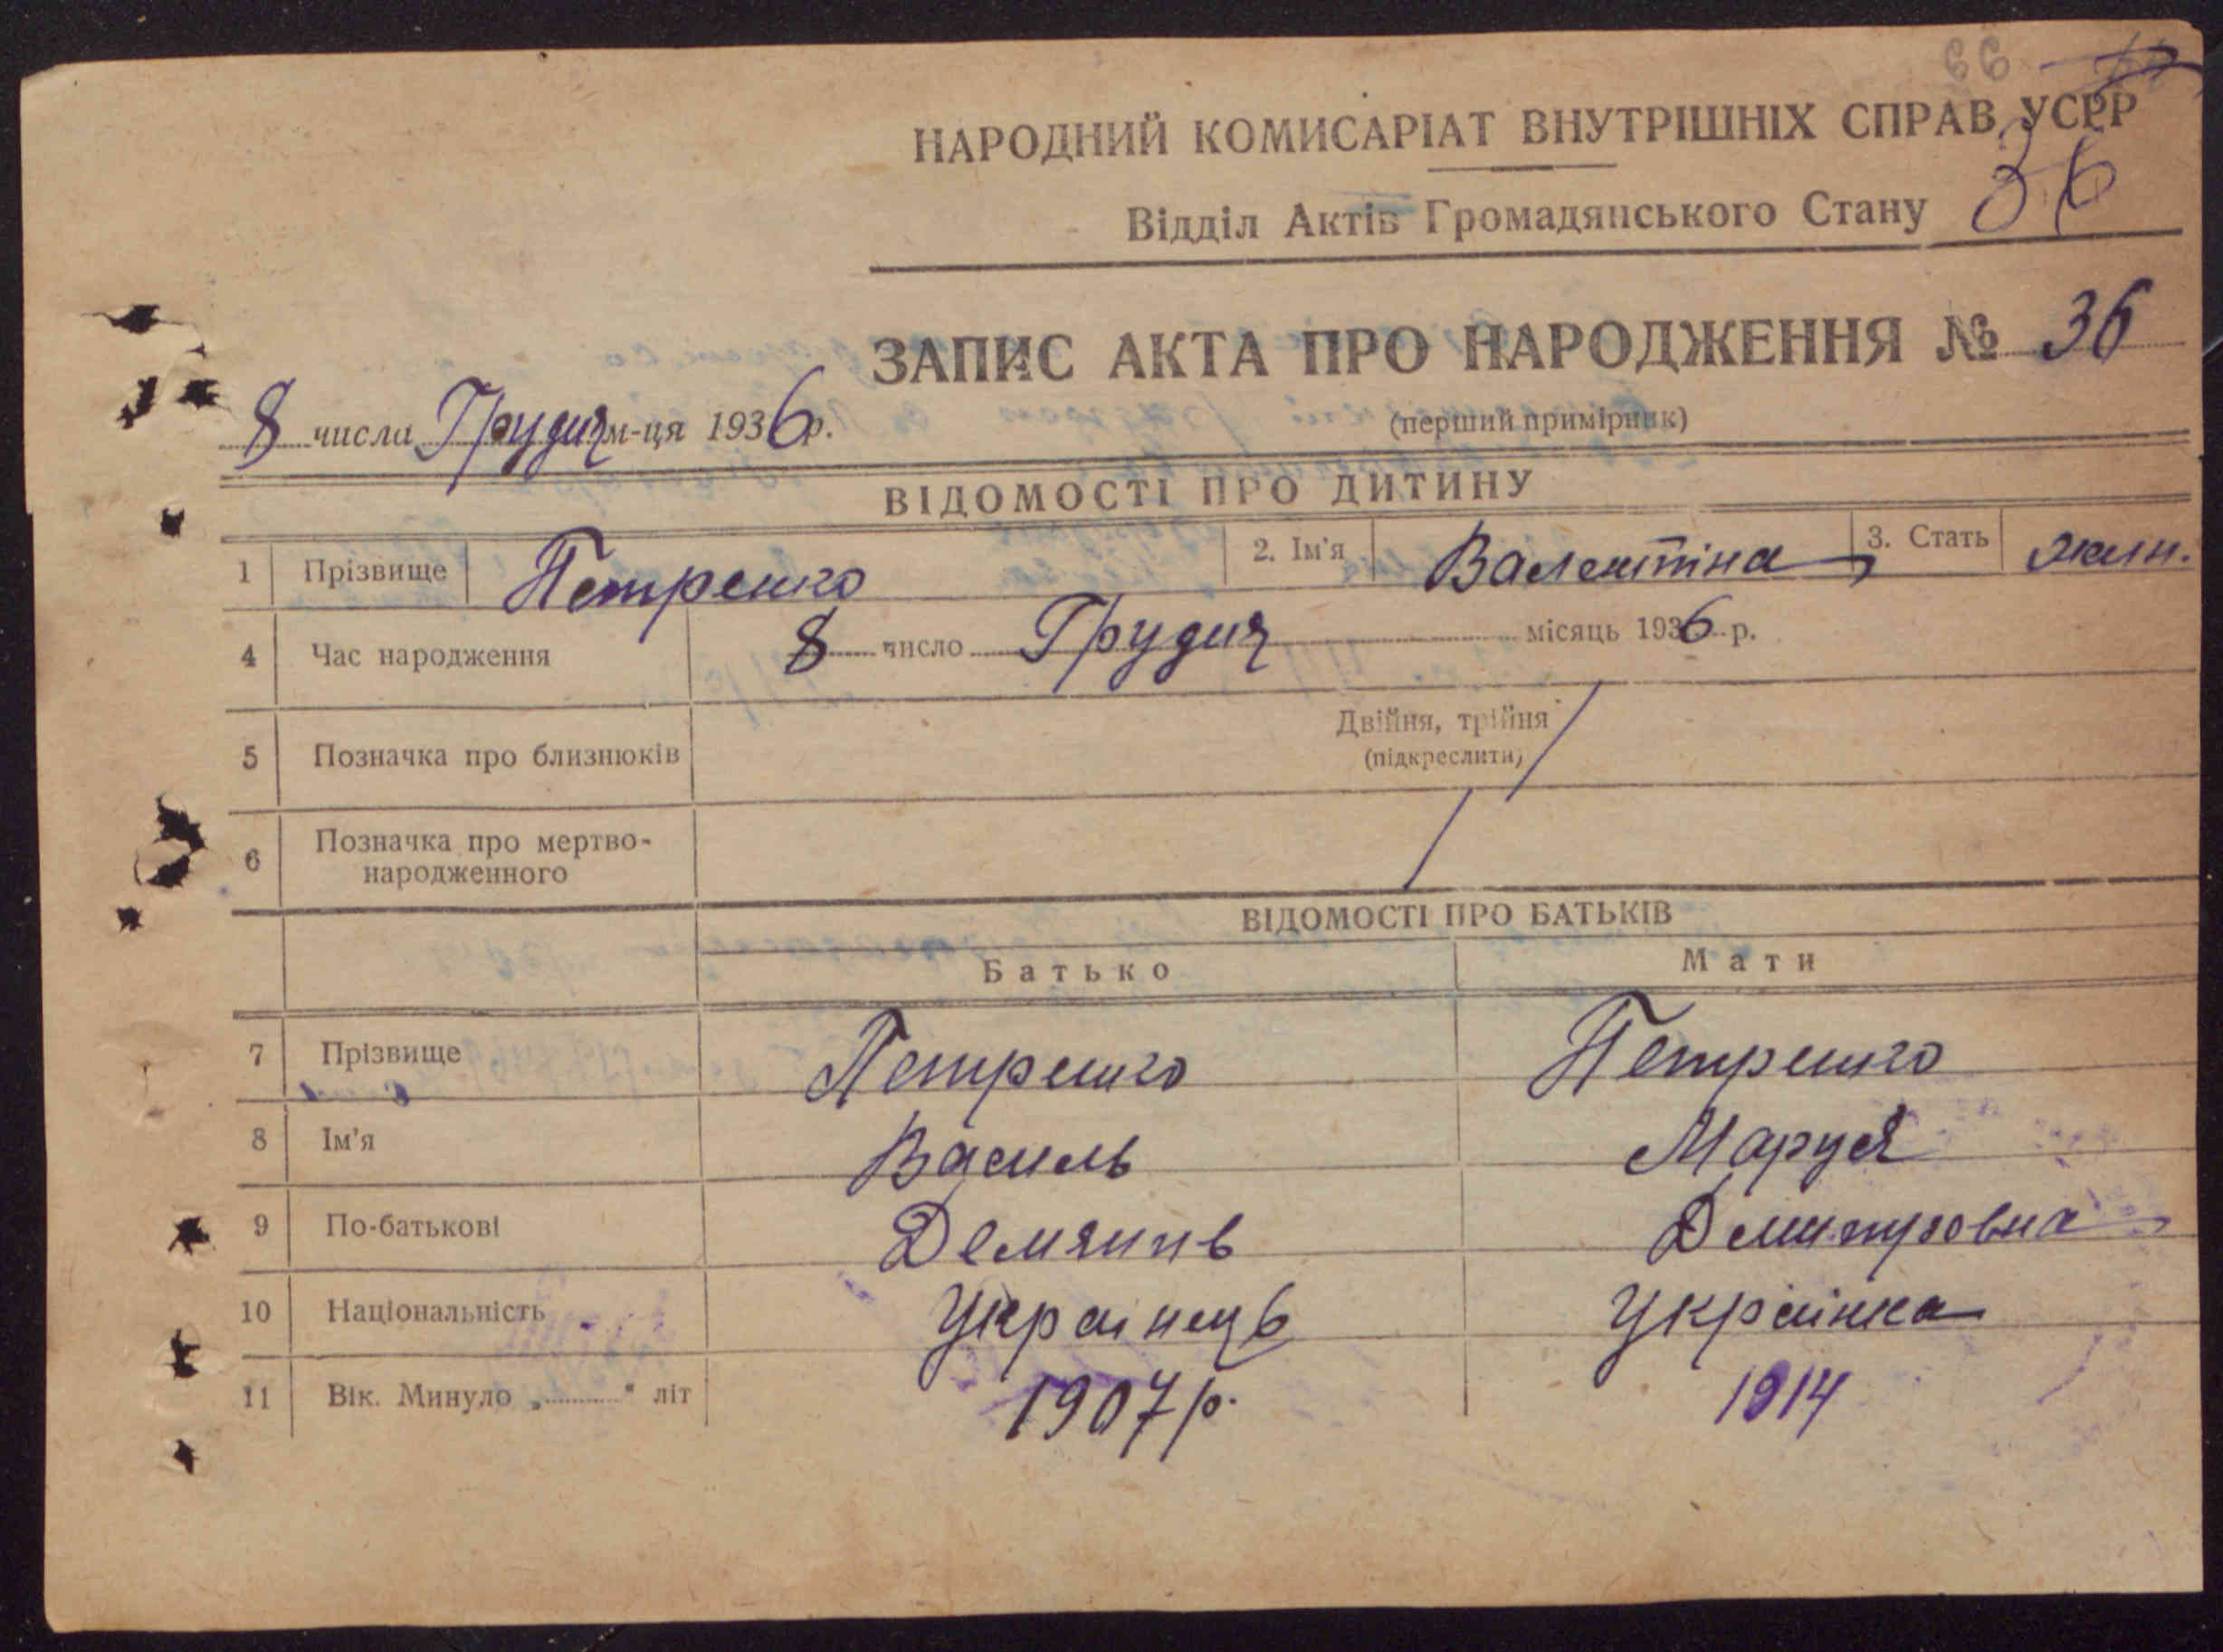 66
НАРОДНИЙ КОМИСАРІАТ ВНУТРІШНІХ СПРАВ УСРР
Відділ Актів Громадянського Стану 36
ЗАПИС АКТА ПРО НАРОДЖЕННЯ № 36
8 числа Грудня м-ця 1936 р. (перший примірник)
ВІДОМОСТІ ПРО ДИТИНУ
1 Прізвище Петренко 2. Ім'я Валентіна 3. Стать жін.
4 Час народження 8 число Грудня місяць 1936 р.
5 Позначка про близнюків Двійня, трійня
(підкреслити)
6 Позначка про мертво-
народженного
ВІДОМОСТІ ПРО БАТЬКІВ
Батько Мати
7 Прізвище Петренко Петренко
8 Ім'я Василь Маруся
9 По-батькові Демянив Демитровна
10 Національність Українець Українка
11 Вік. Минуло „ " літ 1907 р. 1914